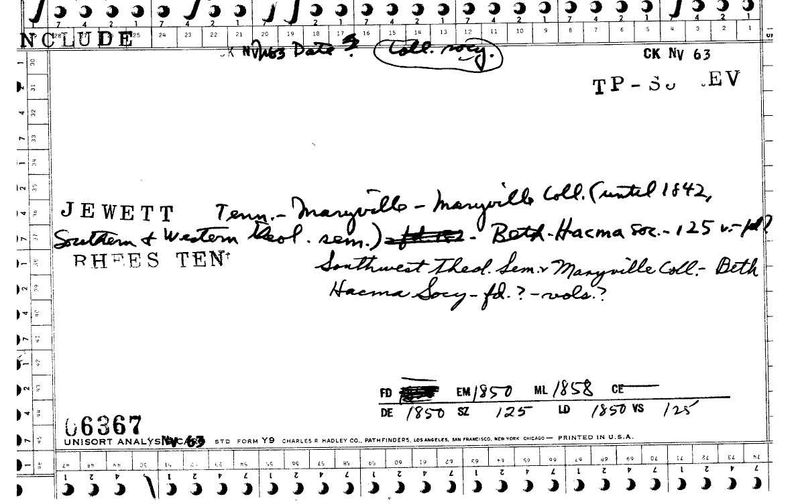 NCLUDE
CK NV 63 Date ? Coll. socy. CK NV 63
TP-S EV
JEWETT Tenn. - Maryville - Maryville Coll. (until 1842,
Southern & Western theol. sem.) - Beth-Hacma Soc. - 125 v. - fd?
RHEES TEN
Southwest Theol. Sem. & Maryville Coll. - Beth
Hacma Socy - fd. ? - vols. ?
FD EM 1850 ML 1858 CE
DE 1850 SZ 125 LD 1850 VS 125
06367
UNISORT ANALYSIS NV 63 STD FORM Y9 CHARLES R HADLEY CO., PATHFINDERS, LOS ANGELES, SAN FRANCISCO, NEW YORK CHICAGO — PRINTED IN U.S.A.